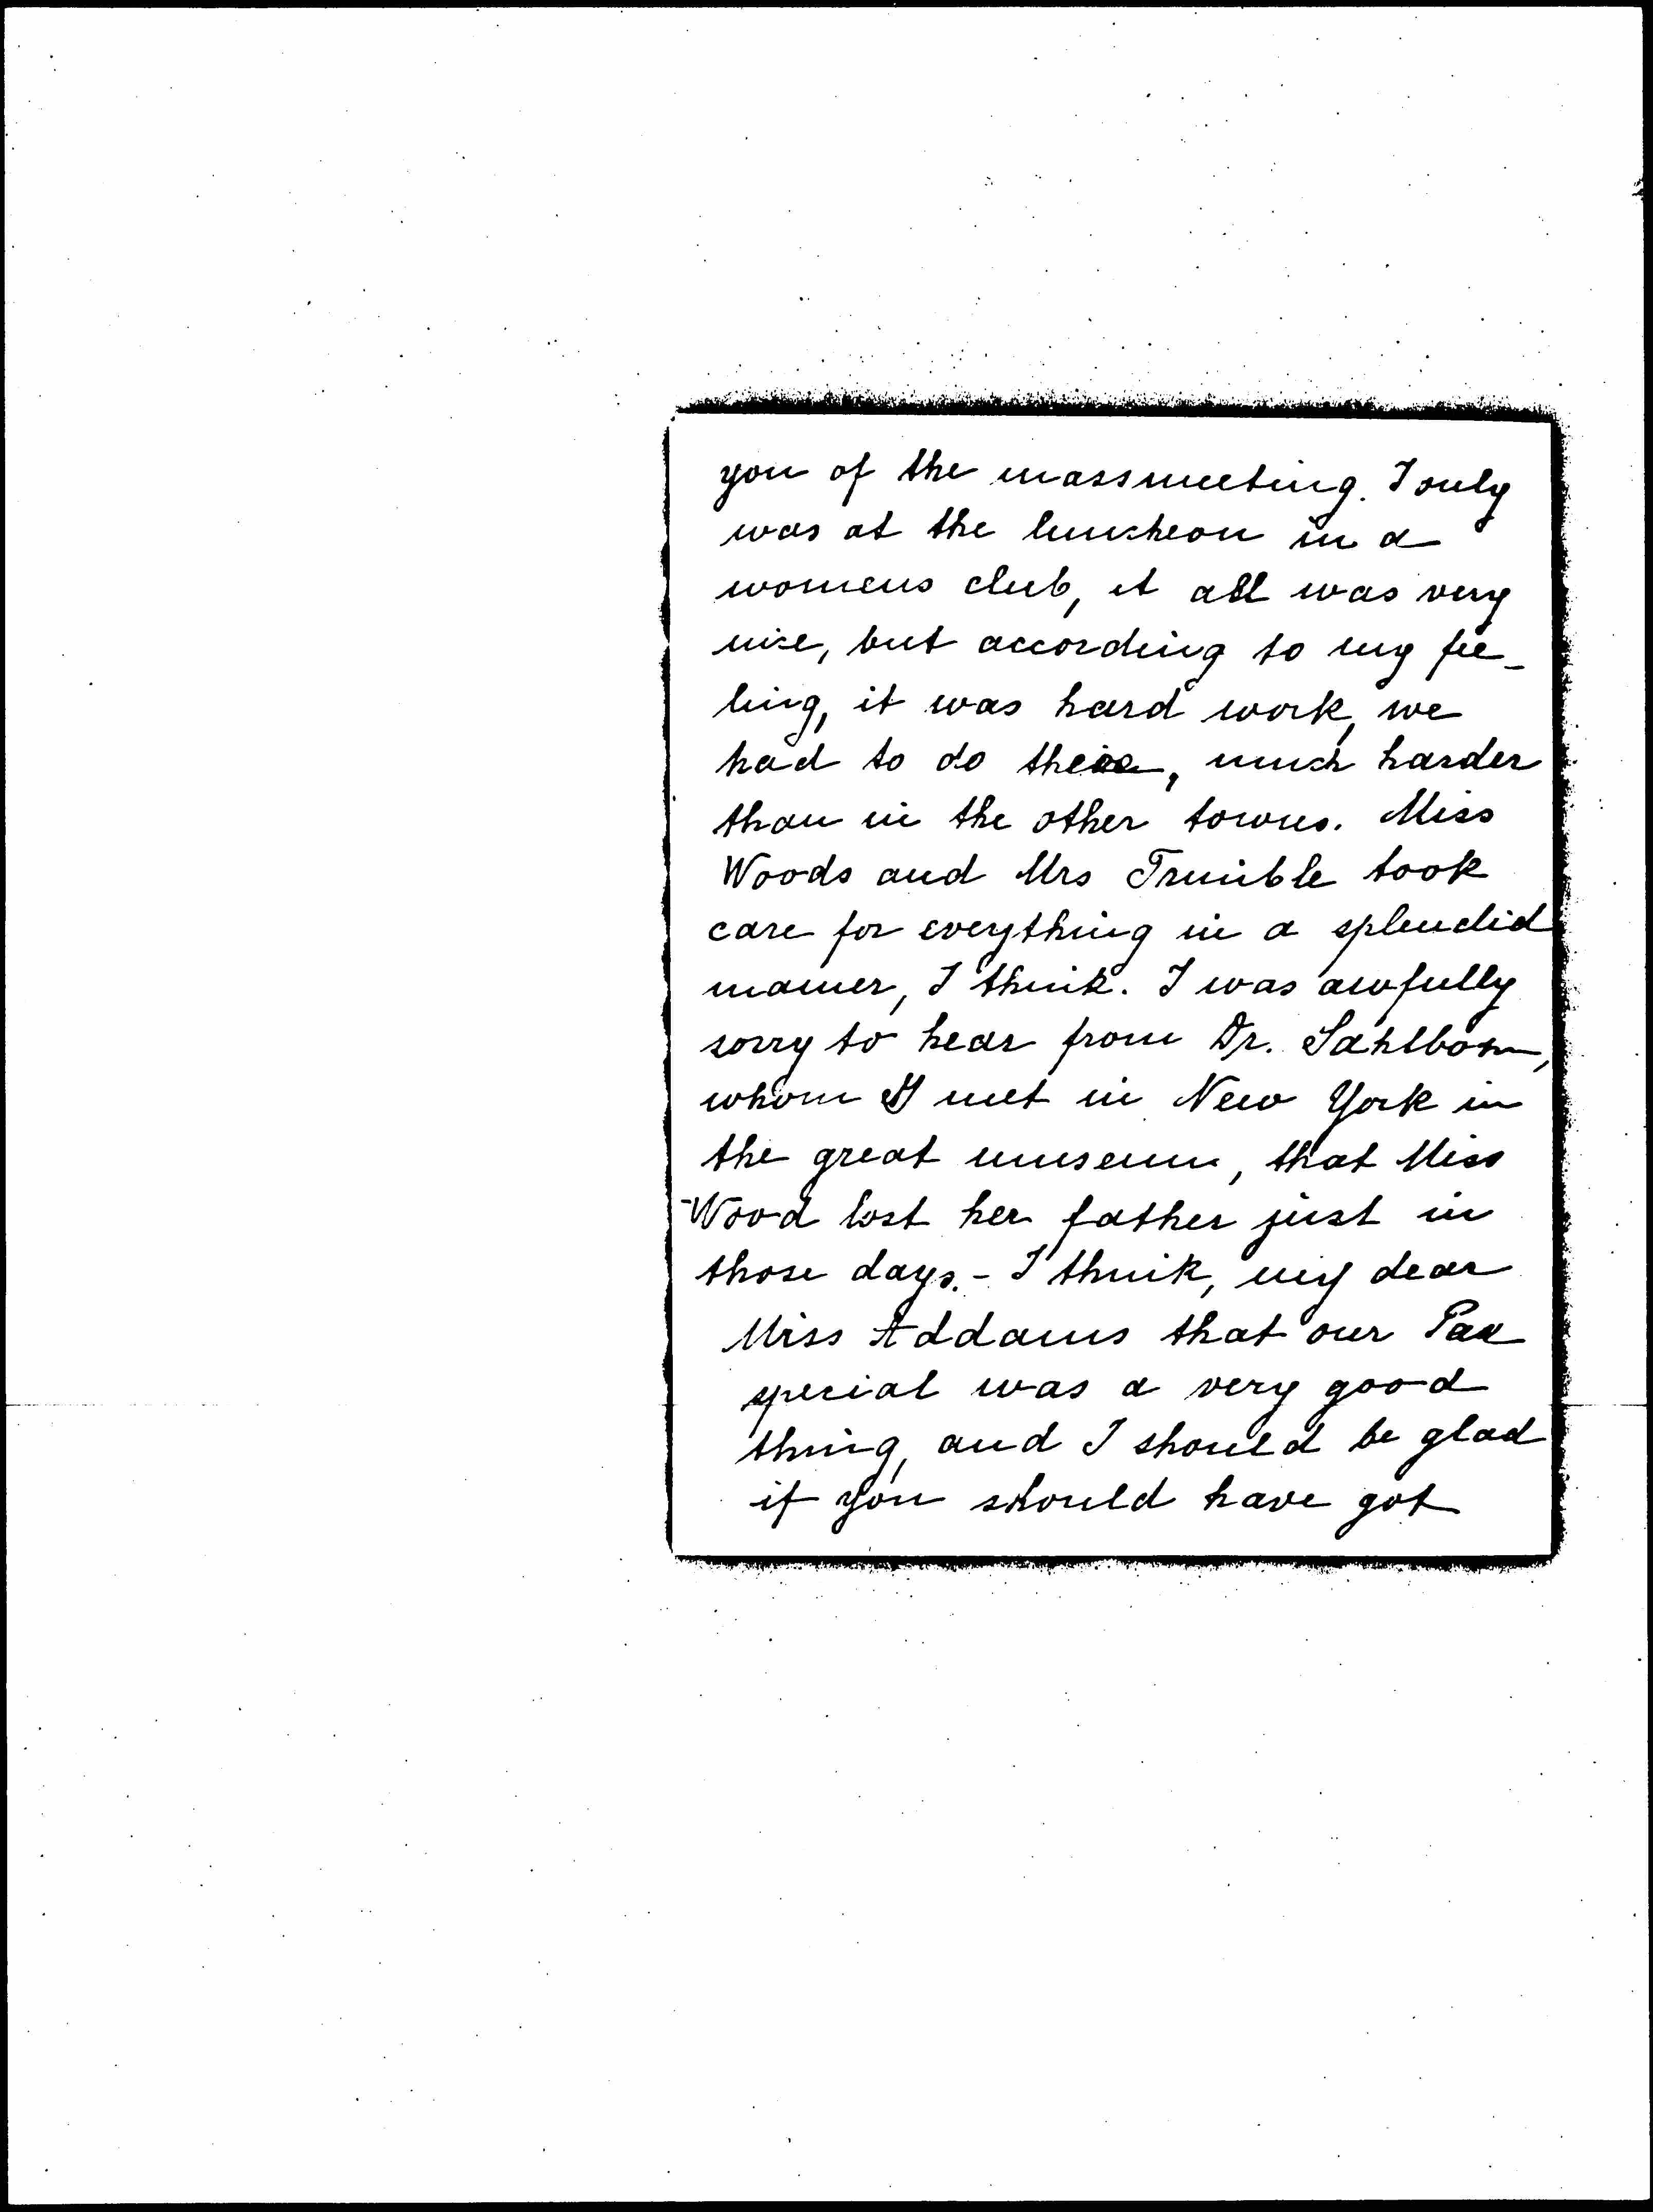 you of the massmeeting. I only
was at the luncheon in a
womens club, it all was very
nise, but according to my fee-
ling, it was hard work, we
had to do there, much harder
than in the other towns. Miss
Woods and Mrs Trumble took
care for everything in a splendid
manner, I think. I was awfully
sorry to hear from Dr. Sahlbom,
whom I met in New York in
the great museum, that Miss
Wood lost her father just in
those days. - I think, my dear
Miss Addams that our Pax
special was a very good
thing, and I should be glad
if you should have got